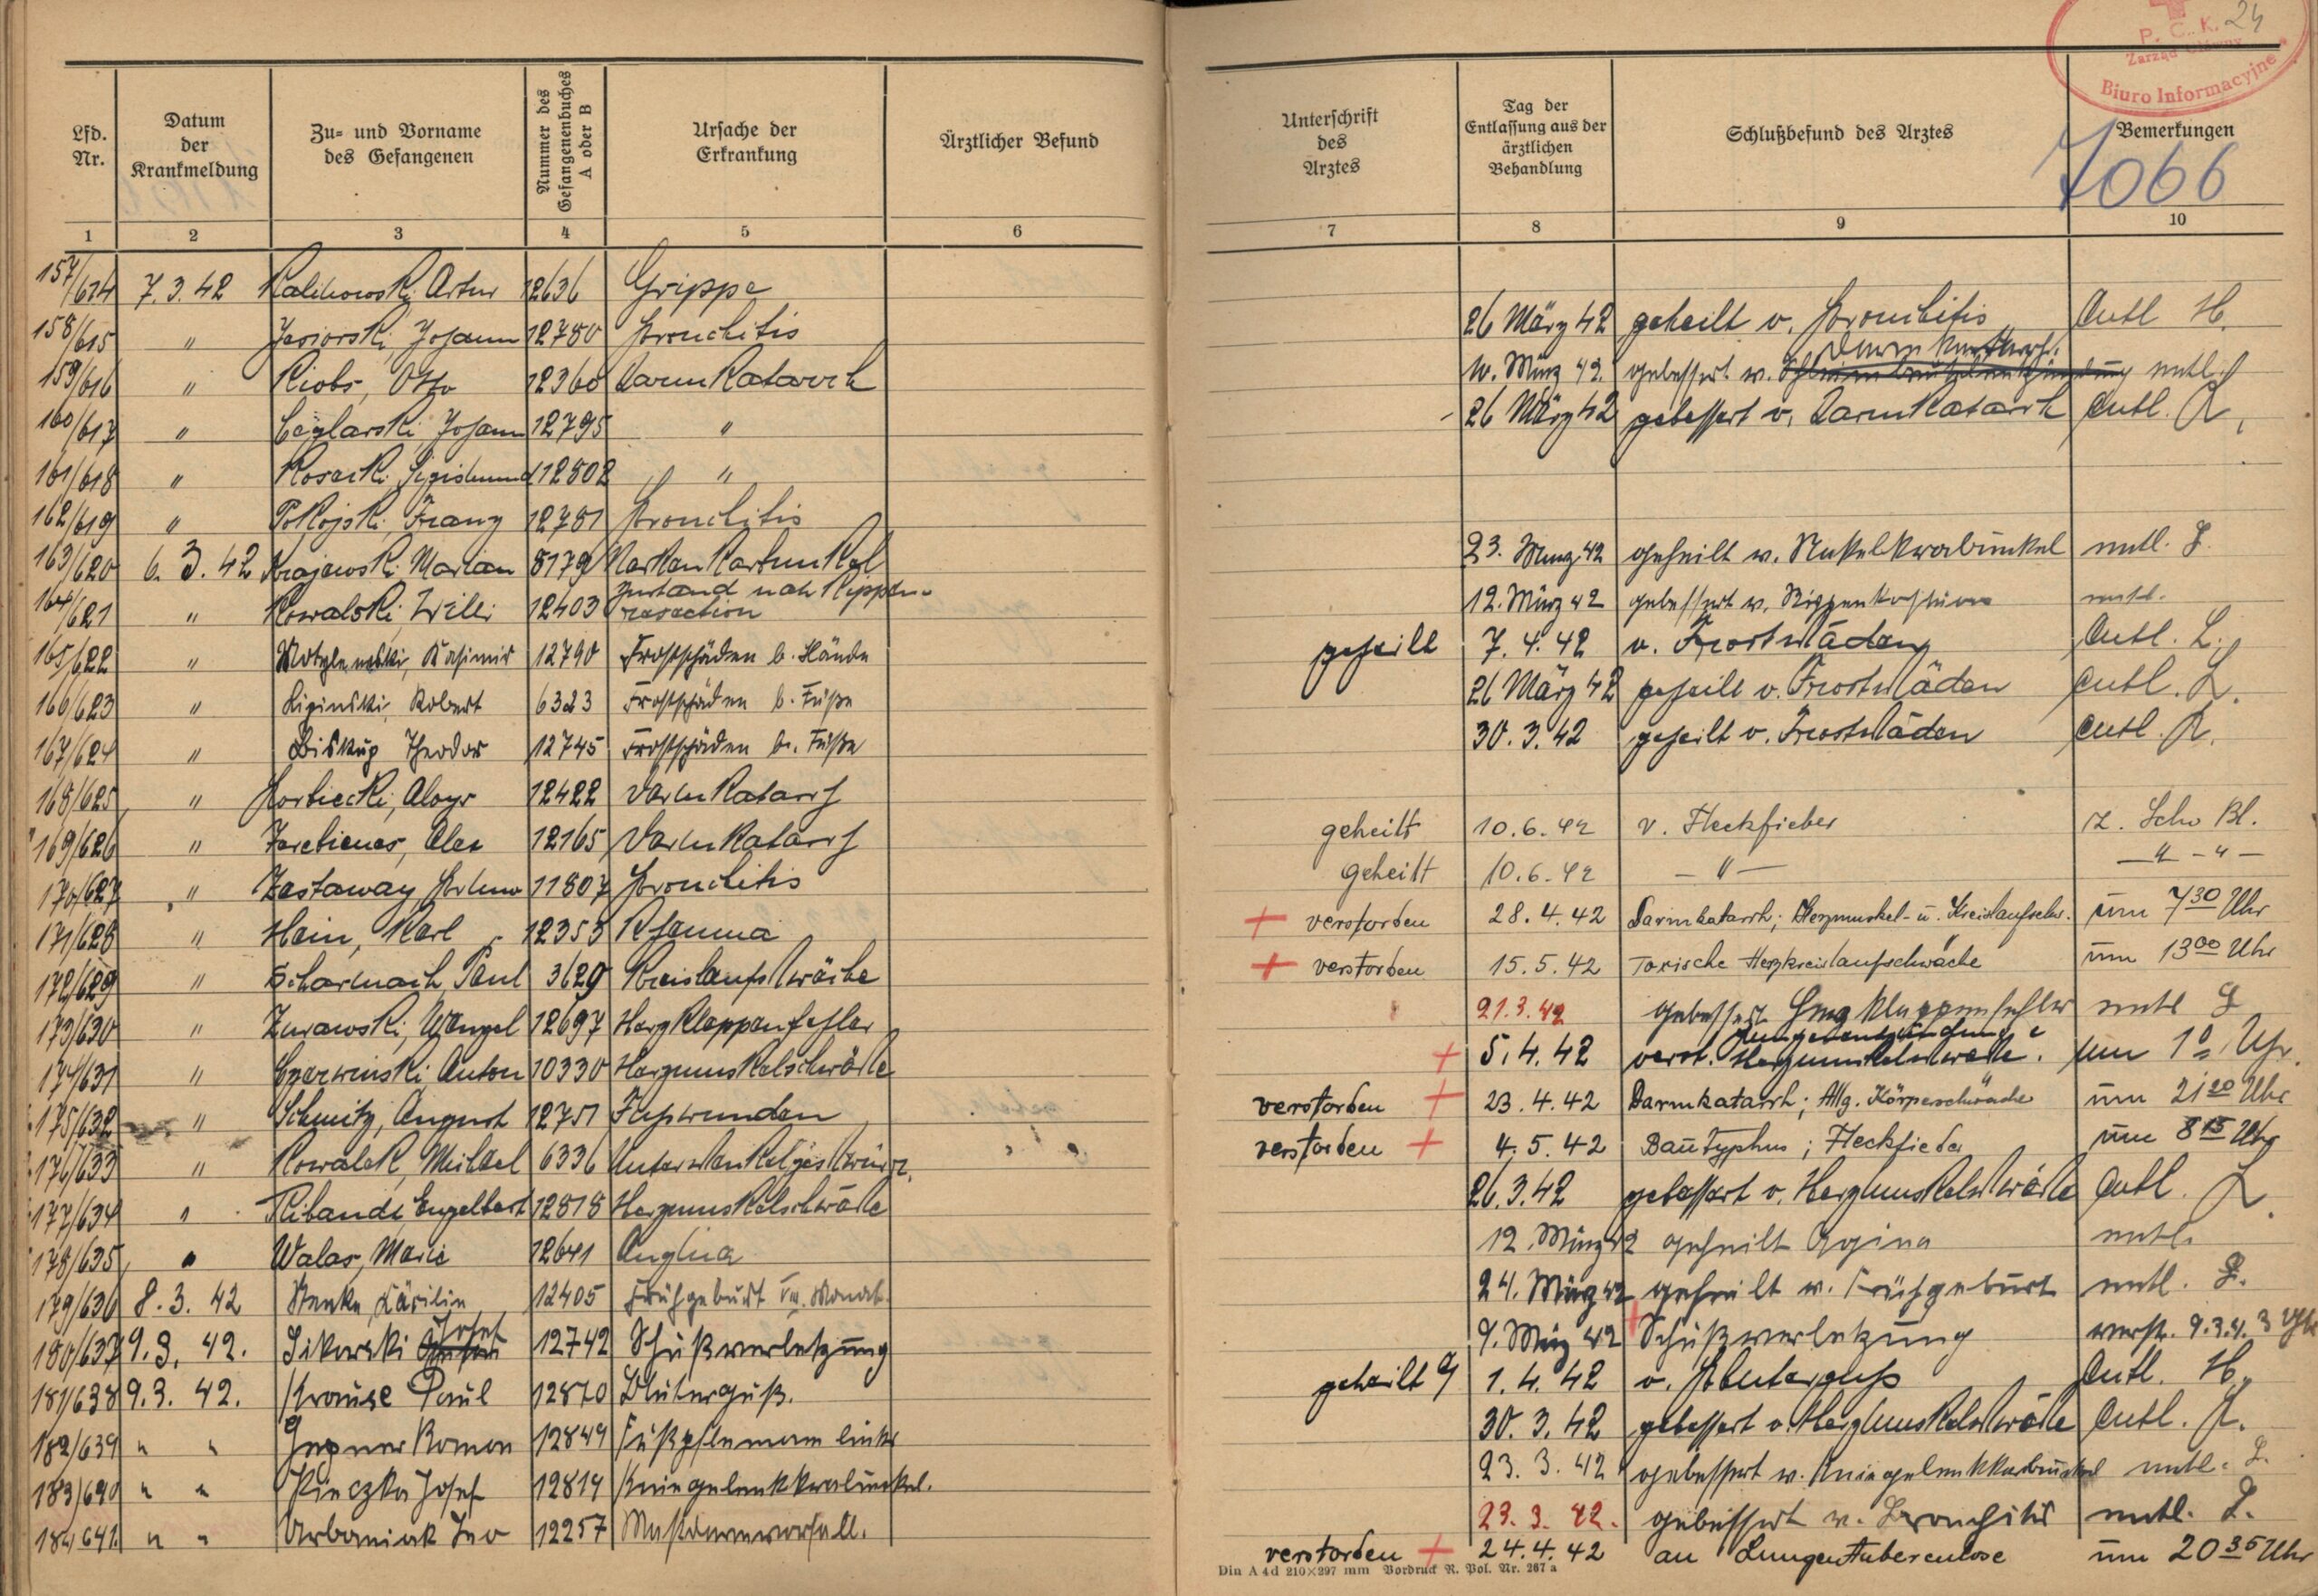 Lfd. Nr.
Datum der Krankmeldung
Zu= und Vorname des Gefangenen
Nummer des Gefangenenbuches A oder B
Ursache der Erkrankung
Ärztlicher Befund
1 2 3 4 5 6
157/614 7.3.42 Artur 12636 Grippe
158/615 " Jesiorski, Johann 12780 Bronchitis
159/616 " Kiobs, Otto 12360 Darmkatarrh
160/617 " Johann 12795 "
161/618 " Kosecki, Sigismund 12802 "
162/619 " Pokojski, Franz 12781 Bronchitis
163/620 6.3.42 Krajewski Marian 8179
164/621 " Kowalski, Willi 12403 Zustand nach Rippen-
resection
165/622 " Kasimir 12790 Frostschäden b. Hände
166/623 " Lipinski, Robert 6323 Frostschäden b. Füße
167/624 " Biskup Theodor 12745 Frostschäden b. Füße
168/625 " Borbiecki, Aloys 12422 Darmkatarrh
169/626 " Alex 12165 Darmkatarrh
170/627 " Zastaway, 11807 Bronchitis
171/628 " Hein, Karl 12353
172/629 " Scharmach, Paul 3629 Kreislaufschwäche
173/630 " Zurawski, Wenzel 12697 Herzklappenfehler
174/631 " Czerwinski, Anton 10330 Herzmuskelschwäche
175/632 " Schmitz, August 12751 Fußwunden
176/633 " Kowalek, Michael 6336
177/634 " Ribandt, Engelbert 12818 Herzmuskelschwäche
178/635 " Walas, Marie 12641 Angina
179/636 8.3.42 Cäcilie 12405 Frühgeburt Monat.
180/637 9.3.42. Sikorski Josef 12742 Schußverletzung
181/638 9.3.42. Krause Paul 12870 Bluterguß.
182/639 " " Roman 12849 links
183/640 " " Pieczka Josef 12814
184/641 " " Urbaniak Ivo 12257 Mastdarmvorfall.
P. C. K. 24
Zarząd Główny
Biuro Informacyjne
Unterschrift des Arztes
Tag der Entlassung aus der ärztlichen Behandlung
Schlußbefund des Arztes
Bemerkungen
7066
7 8 9 10
26 März 42 geheilt v. Bronchitis Entl H.
Darmkatarrh.
10. März 42. gebessert v. entl.
26 März 42 gebessert v. Darmkatarrh Entl. L.
23. März 42 geheilt v. entl. L.
12. März 42 gebessert v. entl.
geheilt 7.4.42 v. Frostschäden Entl. L.
26 März 42 geheilt v. Frostschäden Entl. L.
30.3.42 geheilt v. Frostschäden Entl. L.
geheilt 10.6.42 v. Fleckfieber z. Schw Bl.
geheilt 10.6.42 — " — — " — " —
+ verstorben 28.4.42 Darmkatarrh; Herzmuskel- u. Kreislaufschw. um 7 30 Uhr
+ verstorben 15.5.42 Toxische Herzkreislaufschwäche um 13 00 Uhr
21.3.42 gebessert Herzklappenfehler entl L
Lungenentzündung
+ 5.4.42 verst. Herzmuskelschwäche. um Uhr.
verstorben + 23.4.42 Darmkatarrh; Allg. Körperschwäche um 21 20 Uhr
verstorben + 4.5.42 Bautyphus; Fleckfieber um 8 15 Uhr
26.3.42 gebessert v. Herzmuskelschwäche Entl. L.
12. März 42 geheilt Agina entl.
24. März 42 geheilt v. Frühgeburt entl. L.
+ 9. März 42 Schußverletzung verst. 9.3.4. 3 Uhr
geheilt 1.4.42 v. Bluterguß Entl. H.
30.3.42 gebessert v. Herzmuskelschwäche Entl. L.
23.3.42 gebessert v. entl. L.
23.3.42. gebessert v. Bronchitis entl. L.
verstorben + 24.4.42 an Lungentuberculose um 20 35 Uhr
Din A 4d 210×297 mm Vordruck R. Pol. Nr. 267a